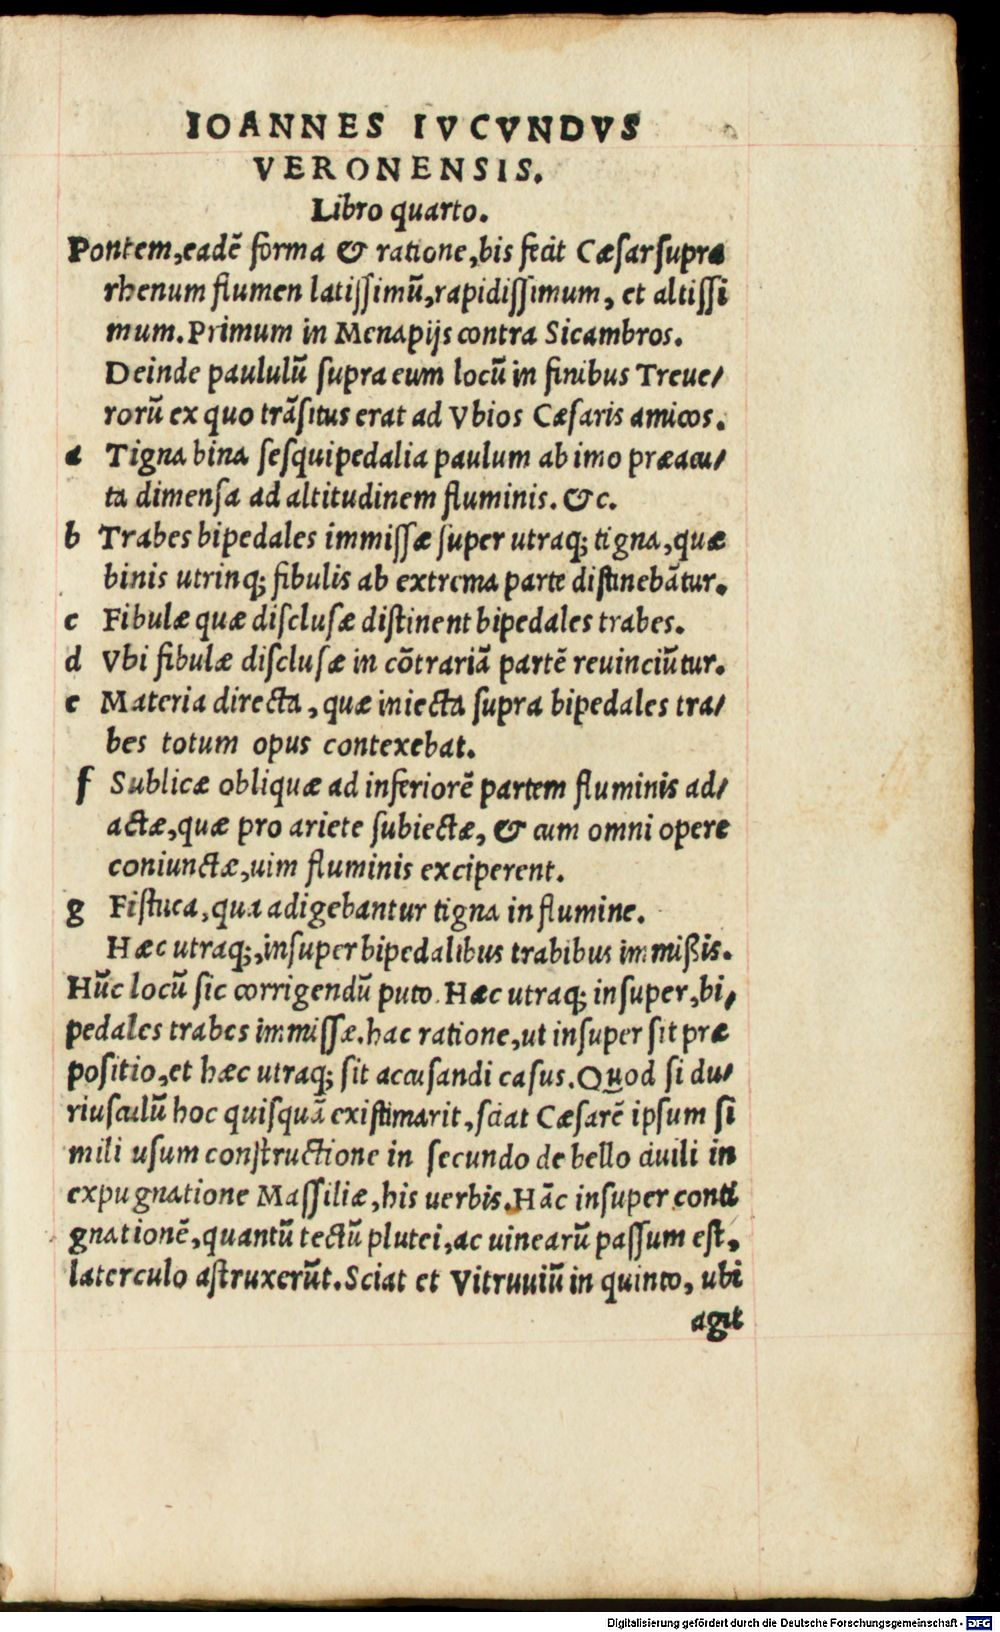 IOANNES IVCVNDVS
VERONENSIS.
Libro quarto.
Pontem, eadē forma & ratione, bis fecit Cæsar supra
rhenum flumen latissimū, rapidissimum, et altissi
mum. Primum in Menapijs contra Sicambros.
Deinde paululū supra eum locū in finibus Treue/
rorū ex quo trāsitus erat ad Vbios Cæsaris amicos.
a Tigna bina sesquipedalia paulum ab imo præacu/
ta dimensa ad altitudinem fluminis. &c.
b Trabes bipedales immissæ super utraq; tigna, quæ
binis utrinq; fibulis ab extrema parte distinebātur.
c Fibulæ quæ disclusæ distinent bipedales trabes.
d Vbi fibulæ disclusæ in cōtrariā partē reuinciūtur.
e Materia directa, quæ iniecta supra bipedales tra/
bes totum opus contexebat.
f Sublicæ obliquæ ad inferiorē partem fluminis ad/
actæ, quæ pro ariete subiectæ, & cum omni opere
coniunctæ, uim fluminis exciperent.
g Fistuca, qua adigebantur tigna in flumine.
Hæc utraq;, insuper bipedalibus trabibus immißis.
Hūc locū sic corrigendū puto. Hæc utraq; insuper, bi/
pedales trabes immissæ. hac ratione, ut insuper sit præ
positio, et hæc utraq; sit accusandi casus. Quod si du/
riusculū hoc quisquā existimarit, sciat Cæsarē ipsum si
mili usum constructione in secundo de bello ciuili in
expugnatione Massiliæ, his uerbis. Hāc insuper conti
gnationē, quantū tectū plutei, ac uinearū passum est,
laterculo astruxerūt. Sciat et Vitruuiū in quinto, ubi
agit
Digitalisierung gefördert durch die Deutsche Forschungsgemeinschaft - DFG